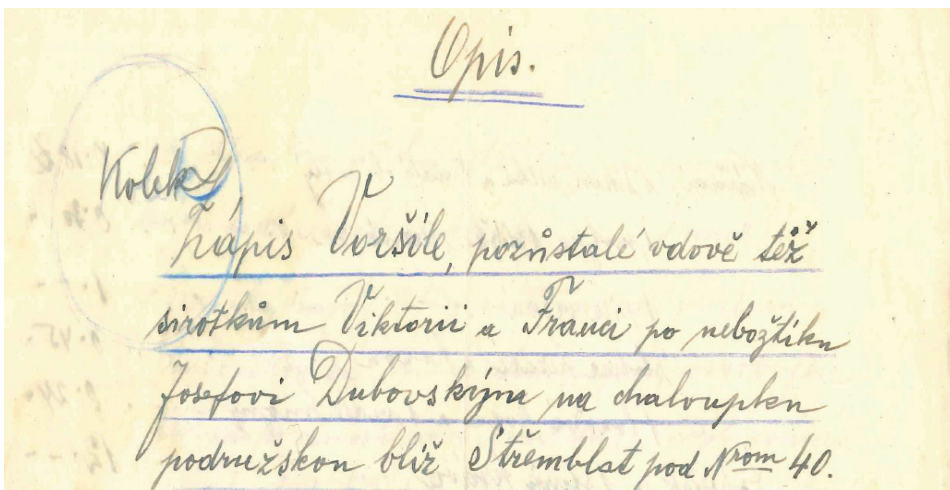 Opis.
Kolek
Zápis Voršile, pozůstalé vdově též
sirotkům Viktorii a Franci po nebožtíku
Josefovi Dubovským na chaloupku
podružskou blíž Střemblat pod Nrom 40.